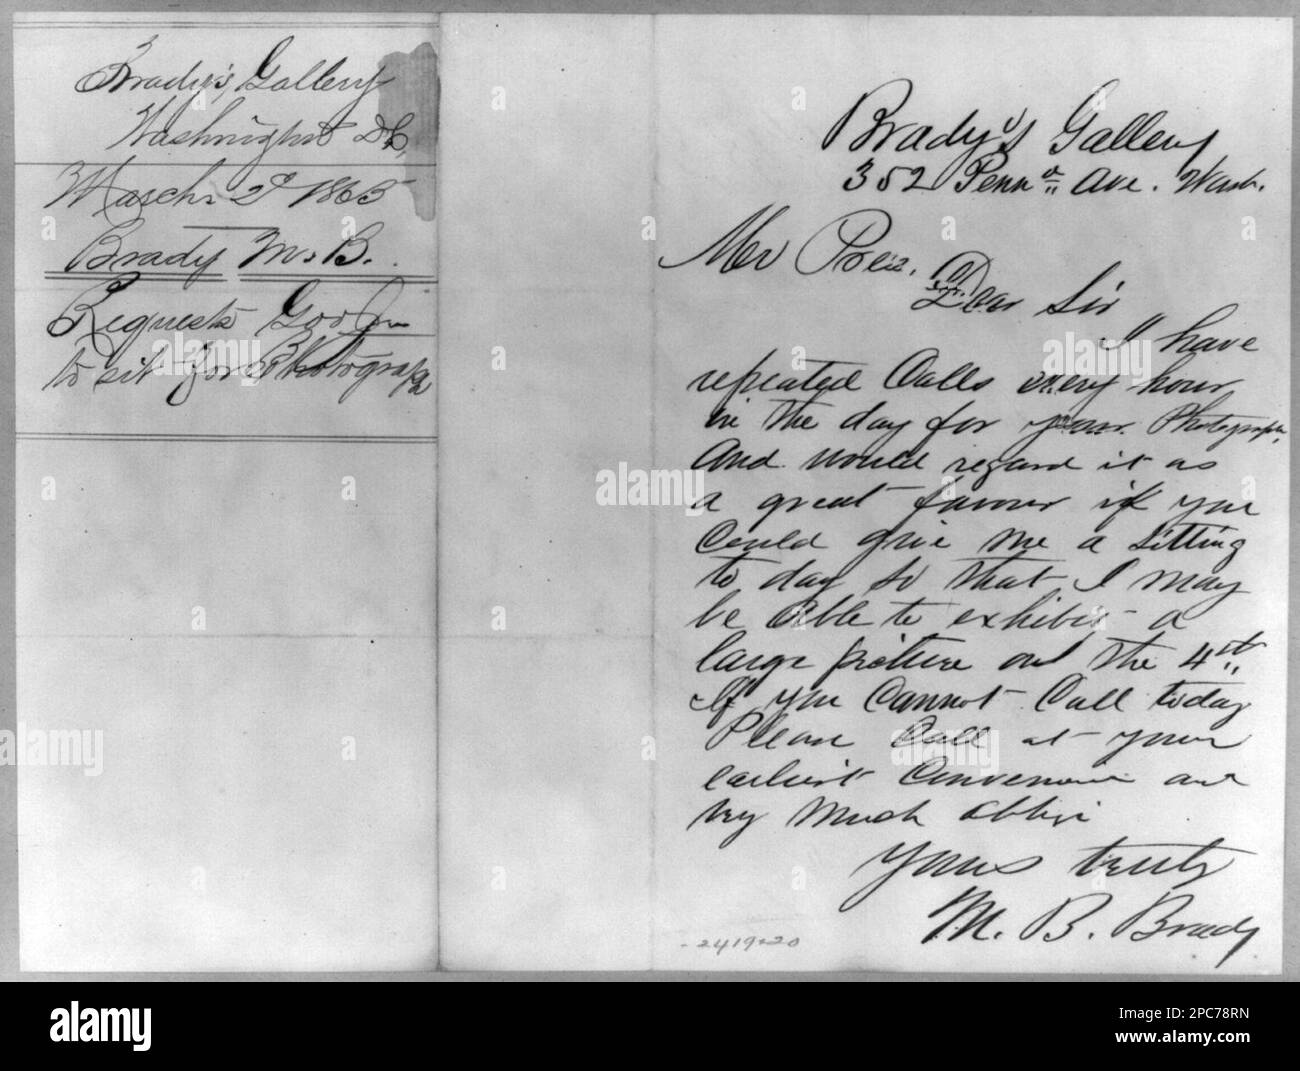 Brady's, Gallery
Washington D.C.
March 2d 1865
Brady M. B.
Requests Gov Jn
to sit for Photograph
Brady's Gallery
352 Penna Ave. Wash.
Mr Pres.
Dear Sir
I have
repeated Calls every hour
in the day for your Photograph
And would regard it as
a great favour if you
Could give me a sitting
to day so that I may
be able to exhibit a
large picture on the 4th
If you Cannot Call today
Please Call at your
earliest Convenience and
very much oblige
Yours truly
M. B. Brady
-2419-20
alamy
Image ID: 2PC78RN
www.alamy.com